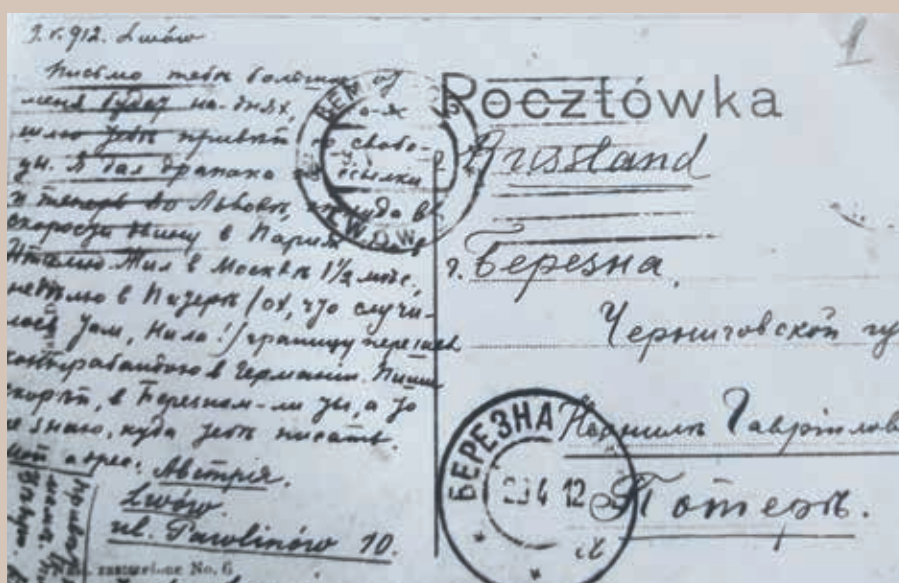 9.V.912. Lwów
Письмо тебѣ большое от
меня будет на-днях, а-я
шлю тебѣ привѣт со свобо-
ды. Я дал драпака из ссылки
и теперь во Львовѣ, откуда в
скорости двину в Париж
Италию Жил в Москвѣ 1½ мѣс.,
недѣлю в Питерѣ (ох, что случи-
лось там, Нила!) границу перешел
контрабандою в Германии. Пиши
скорѣй, в Березном-ли ты, а то
не знаю, куда тебѣ писать.
Мой адрес: Австрія.
Lwów.
ul. Pawlinów 10.
No. 6
1
Pocztówka
Russland
г. Березна,
Черниговской гу
Гавріилов
Потерь.
LWÓW
БЕРЕЗНА
29 4 12